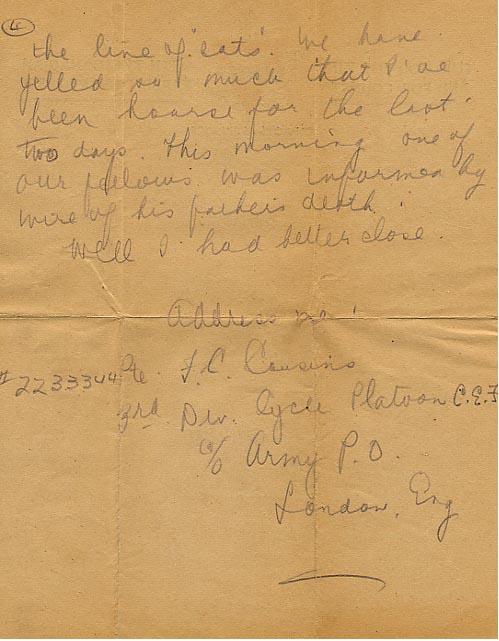 4
the line of "eats". We have
yelled so much that I've
been hoarse for the last
two days. This morning one of
our fellows was informed by
wire of his father's death.
Well I had better close.
Address me:
# 2233344 Pte. F. C. Cousins
3rd Div. Cycle Platoon C.E.F
c/o Army P.O.
London, Eng